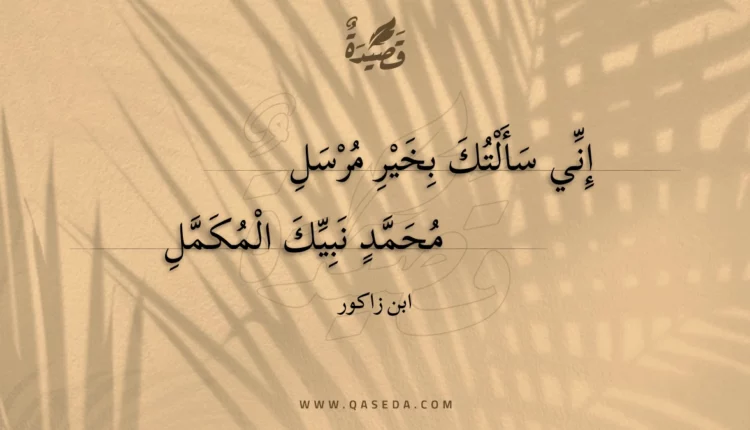 قَصِيدَةٌ
إِنِّي سَأَلْتُكَ بِخَيْرِ مُرْسَلِ
مُحَمَّدٍ نَبِيِّكَ الْمُكَمَّلِ
ابن زاكور
WWW.QASEDA.COM